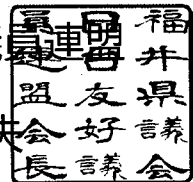 福井県議会
日中友好議
員連盟会長